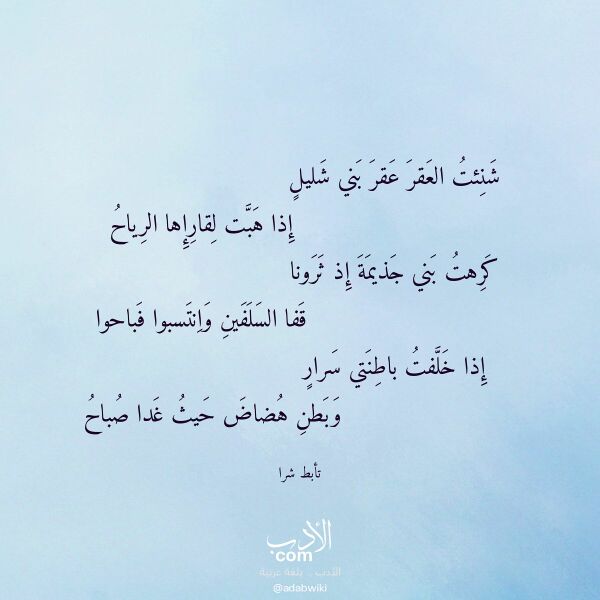 شَنِئتُ العَقرَ عَقرَ بَني شَليلٍ
إِذا هَبَّت لِقارِإِها الرِياحُ
كَرِهتُ بَني جَذيمَةَ إِذ ثَرَونا
قَفا السَلَفَينِ وَاِنتَسبوا فَباحوا
إِذا خَلَّفتُ باطِنَتي سَرارٍ
وَبَطنِ هُضاضَ حَيثُ غَدا صُباحُ
تأبط شرا
الأدب
com
الأدب .. بلغة عربية
@adabwiki